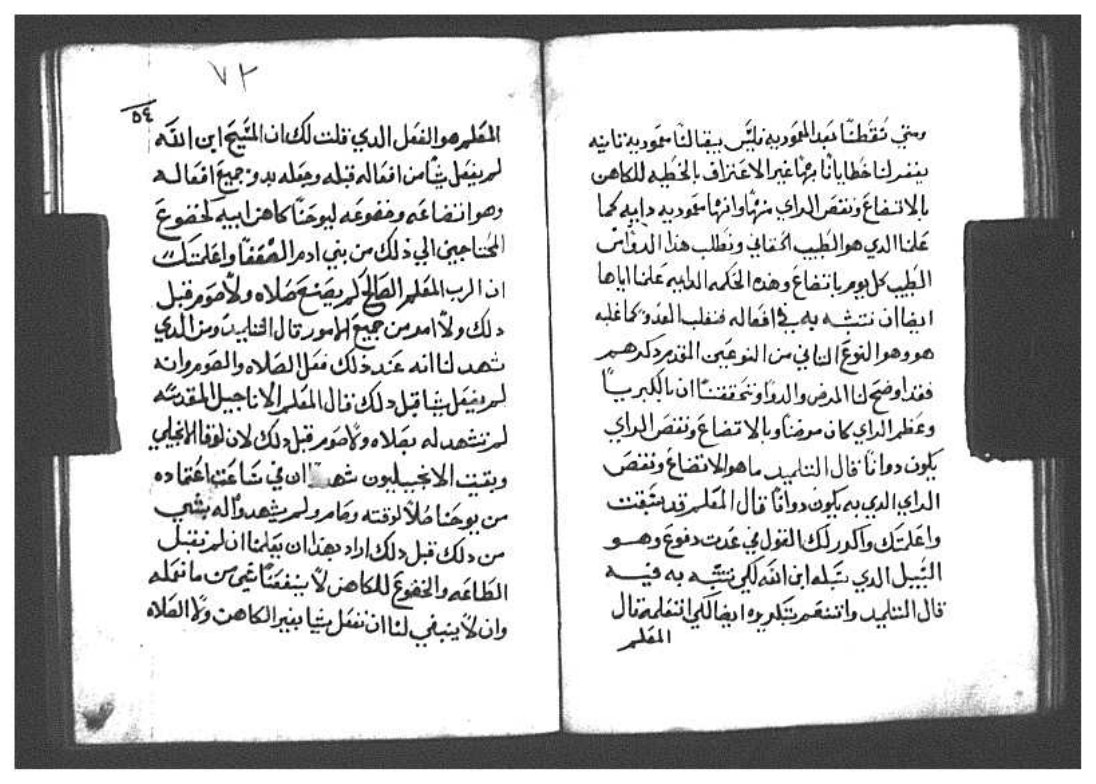 ومتي سقطنا بعد المعموديه فليس يبقا لنا معموديه ثانيه
يغفر لنا خطايانا بها غير الاعتراف بالخطيه للكاهن
بالاتضاع ونقص الراي منها وانها معموديه دايمه كما
علمنا الذي هو الطبيب الحقاني ونطلب هذا الدوا من
الطبيب كل يوم باتضاع وهذه الحكمه الدايمه علمنا اياها
ايضا ان نتشبه به في افعاله فنغلب العدو كما غلبه
هو وهو النوع الثاني من النوعين المقدم ذكرهم
فقد اوضح لنا المرض والدوا وتحققنا ان بالكبريا
وعظم الراي كان مرضنا وبالاتضاع ونقص الراي
يكون دوانا قال التلميد ما هو الاتضاع ونقص
الراي الدي به يكون دوانا قال المعلم قد سبقت
واعلمتك واكرر لك القول في عدت دفوع وهو
السبيل الدي سبله ابن الله لكي نتشبه به فيه
قال التلميد واتنعم بتكريره ايضا لكي اتعلمه قال
المعلم
٧٢
٥٤
المعلم هو الفعل الدي قلت لك ان المسيح ابن الله
لم يفعل شيا من افعاله قبله وجعله بدو جميع افعاله
وهو اتضاعه وخضوعه ليوحنا كاهن ابيه لخضوع
المحتاجين الي دلك من بني ادم الضعفا واعلمتك
ان الرب المعلم الصالح لم يصنع صلاه ولا صوم قبل
دلك ولا امر من جميع الامور قال التلميد ومن الدي
شهد لنا انه عند دلك فعل الصلاه والصوم وانه
لم يفعل شيا قبل دلك قال المعلم الاناجيل المقدسه
لم تشهد له بصلاه ولا صوم قبل دلك لان لوقا الانجيلي
وبقيت الانجيليون شهدوا ان في ساعت اعتماده
من يوحنا صلا لوقته وصام ولم يشهدوا له بشي
من دلك قبل دلك اراد بهدا ان يعلمنا ان لم نقبل
الطاعه والخضوع للكاهن لا ينفعنا شي من ما نعمله
وان لا ينبغي لنا ان نفعل شيا بغير الكاهن ولا الصلاه